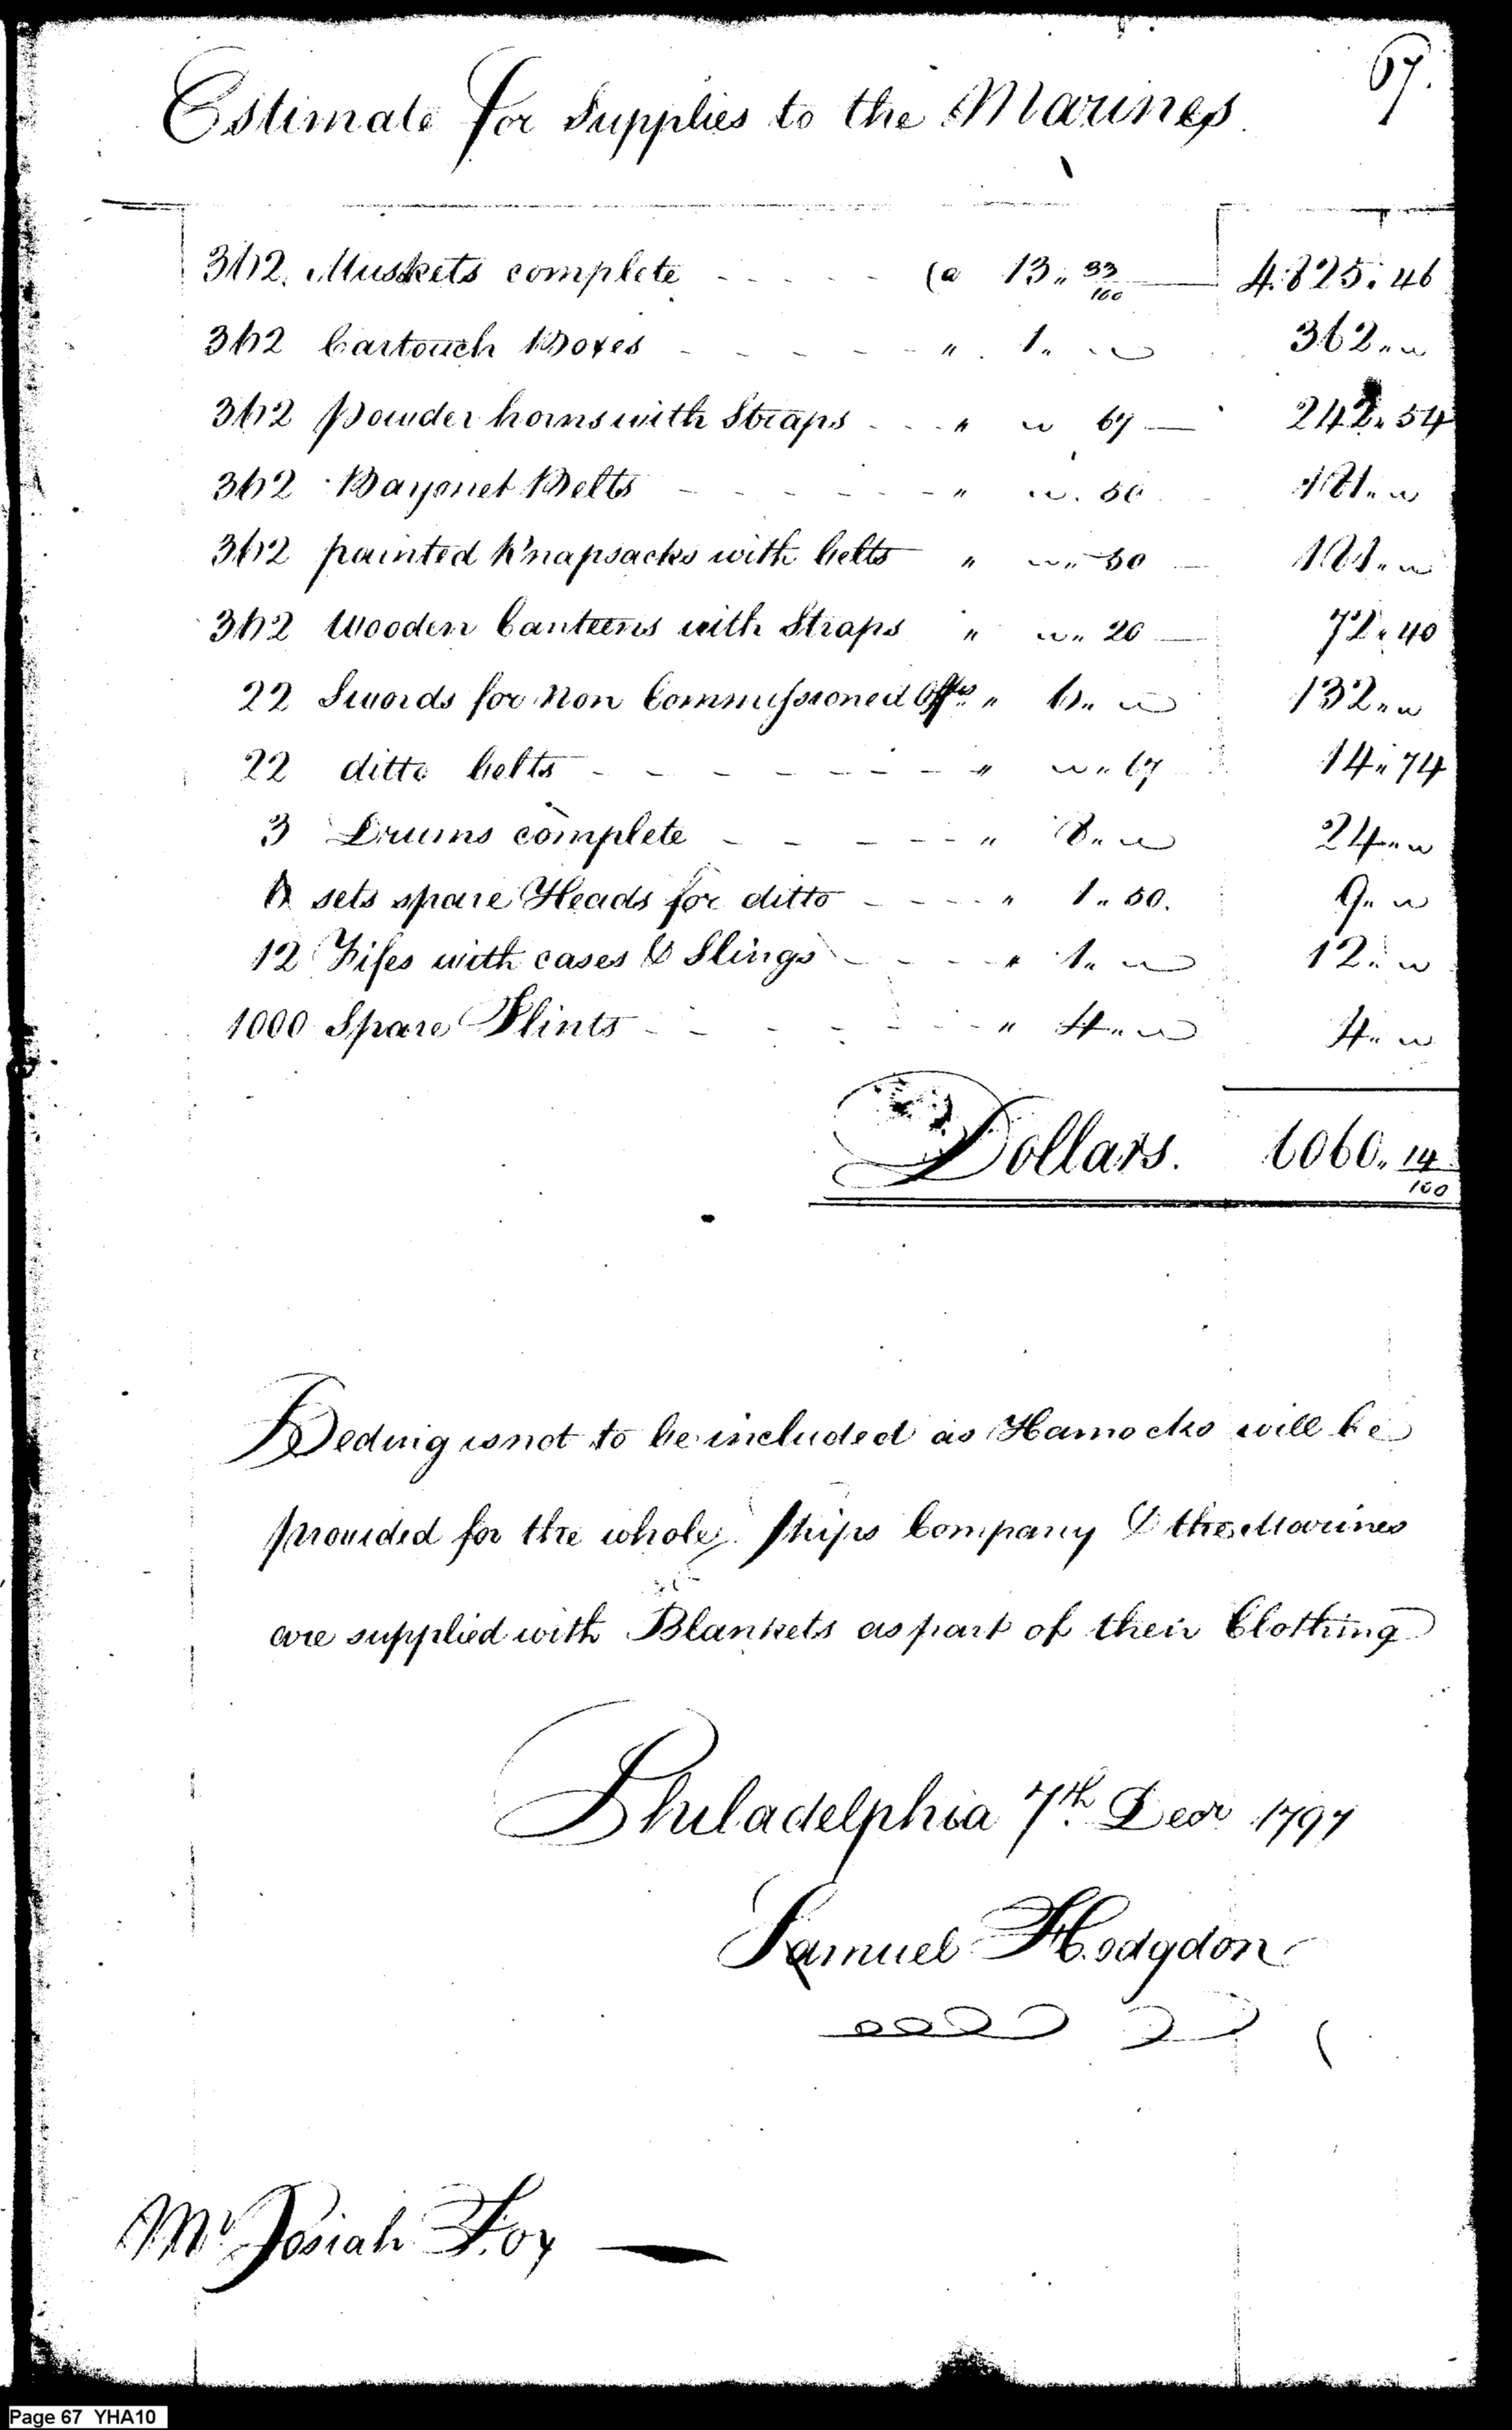 67.
Estimate for Supplies to the Marines
362. Muskets complete - - - - - (a 13.. 33/100 — 4.825. 46
362 Cartouch Boxes - - - - - - " 1.. .. 362.. "
362 powder horns with Straps - - - " " 67 — 242.. 54
362 Bayonet Belts - - - - - - " " . 50 181.. "
362 painted Knapsacks with belts " " .. 50 181.. "
362 Wooden Canteens with Straps " " .. 20 — 72.. 40
22 Swords for Non Commissioned Offrs. " 6.. " 132.. "
22 ditto belts - - - - - - - - " " .. 67 14.. 74
3 Drums complete - - - - - " 8.. " 24.. "
6 sets spare Heads for ditto - - - - " 1.. 50. 9.. "
12 Fifes with cases & Slings - - - - " 1.. " 12.. "
1000 Spare Flints - - - - - - " 4.. " 4.. "
Dollars. 6060.. 14/100
Beding is not to be included as Hamocks will be
provided for the whole Ships Company & the Marines
are supplied with Blankets as part of their Clothing
Philadelphia 7th. Decr 1797
Samuel Hodgdon
Mr Josiah Fox —
Page 67 YHA10